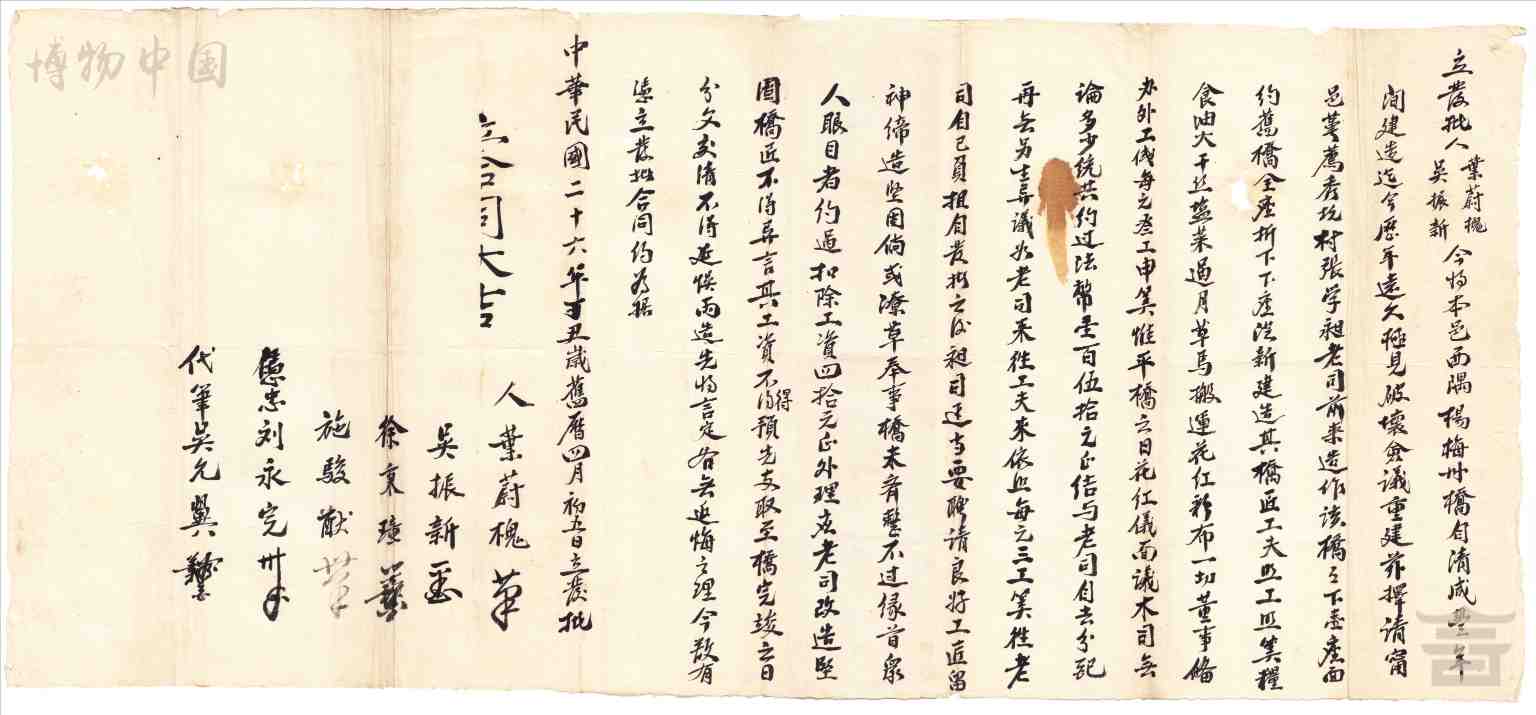 立發批人葉蔚槐吳振新今將本邑西隅楊梅卅橋自清咸豐年
間建造迄今歷年遠久極見破壞僉議重建茲擇請甯
邑葦薦秀坑村張学昶老司前來造作該橋之下臺座面
約舊橋全座拆下下座從新建造其橋匠工夫照工照算糧
食油火干丝盐菜過月草馬搬運花紅彩布一切董事俻
办外工伐每元叁工申算惟平橋之日花紅儀面議木司無
論多少統共約过法幣壹百伍拾元正结与老司自去分配
再無另生异議如老司来徃工夫来依照每元三工算徃老
司自己負担自發批之後昶司迳当要聘请良好工匠留
神締造坚固倘或潦草奉事橋未齊整不过缘首衆
人眼目者約過扣除工資四拾元正外理應老司改造堅
固橋匠不得异言其工資不得預先支取至橋完竣之日
分文交清不得延悮两造先將言定各無返悔之理今欲有
憑立發批合同約為据
中華民國二十六年丁丑歲舊曆四月初五日立發批
立合同大吉
人葉蔚槐
吳振新
徐東璋
施駿猷
憑忠刘永完
代筆吳允興
博物中国